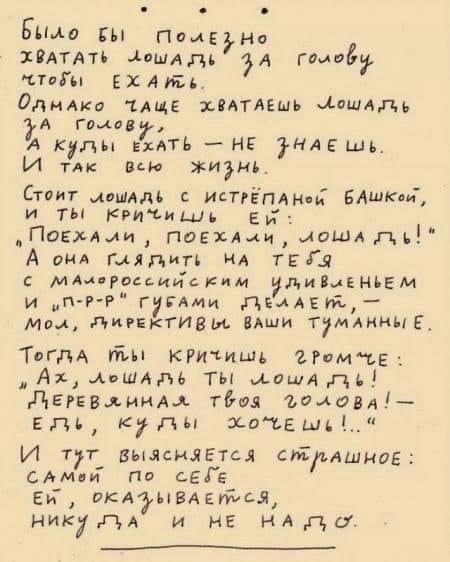 * * *
Было бы полезно
хватать лошадь за голову
чтобы ехать.
Однако чаще хватаешь лошадь
за голову,
а куды ехать — не знаешь.
И так всю жизнь.
Стоит лошадь с истрёпаной башкой,
и ты кричишь ей:
„Поехали, поехали, лошадь!“
А она глядить на тебя
с малороссийским удивленьем
и „п-р-р“ губами делает, —
мол, директивы ваши туманные.
Тогда ты кричишь громче:
„Ах, лошадь ты лошадь!
Деревянная твоя голова! —
Едь, куды хочешь!..“
И тут выясняется страшное:
самой по себе
ей, оказывается,
никуда и не надо.